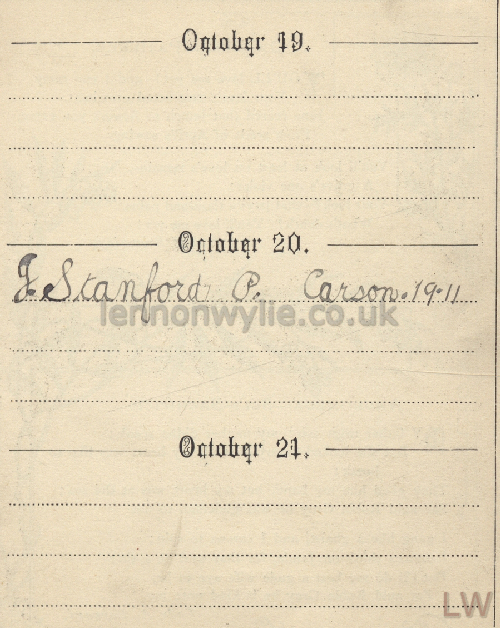 October 19.
October 20.
J. Stanford P. Carson. 19.11
lennonwylie.co.uk
October 21.
LW